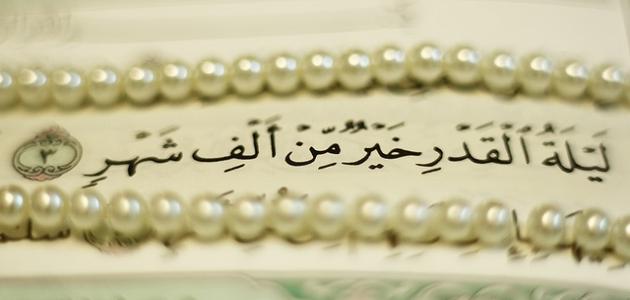 لَيْلَةُ الْقَدْرِ خَيْرٌ مِّنْ أَلْفِ شَهْرٍ ٣